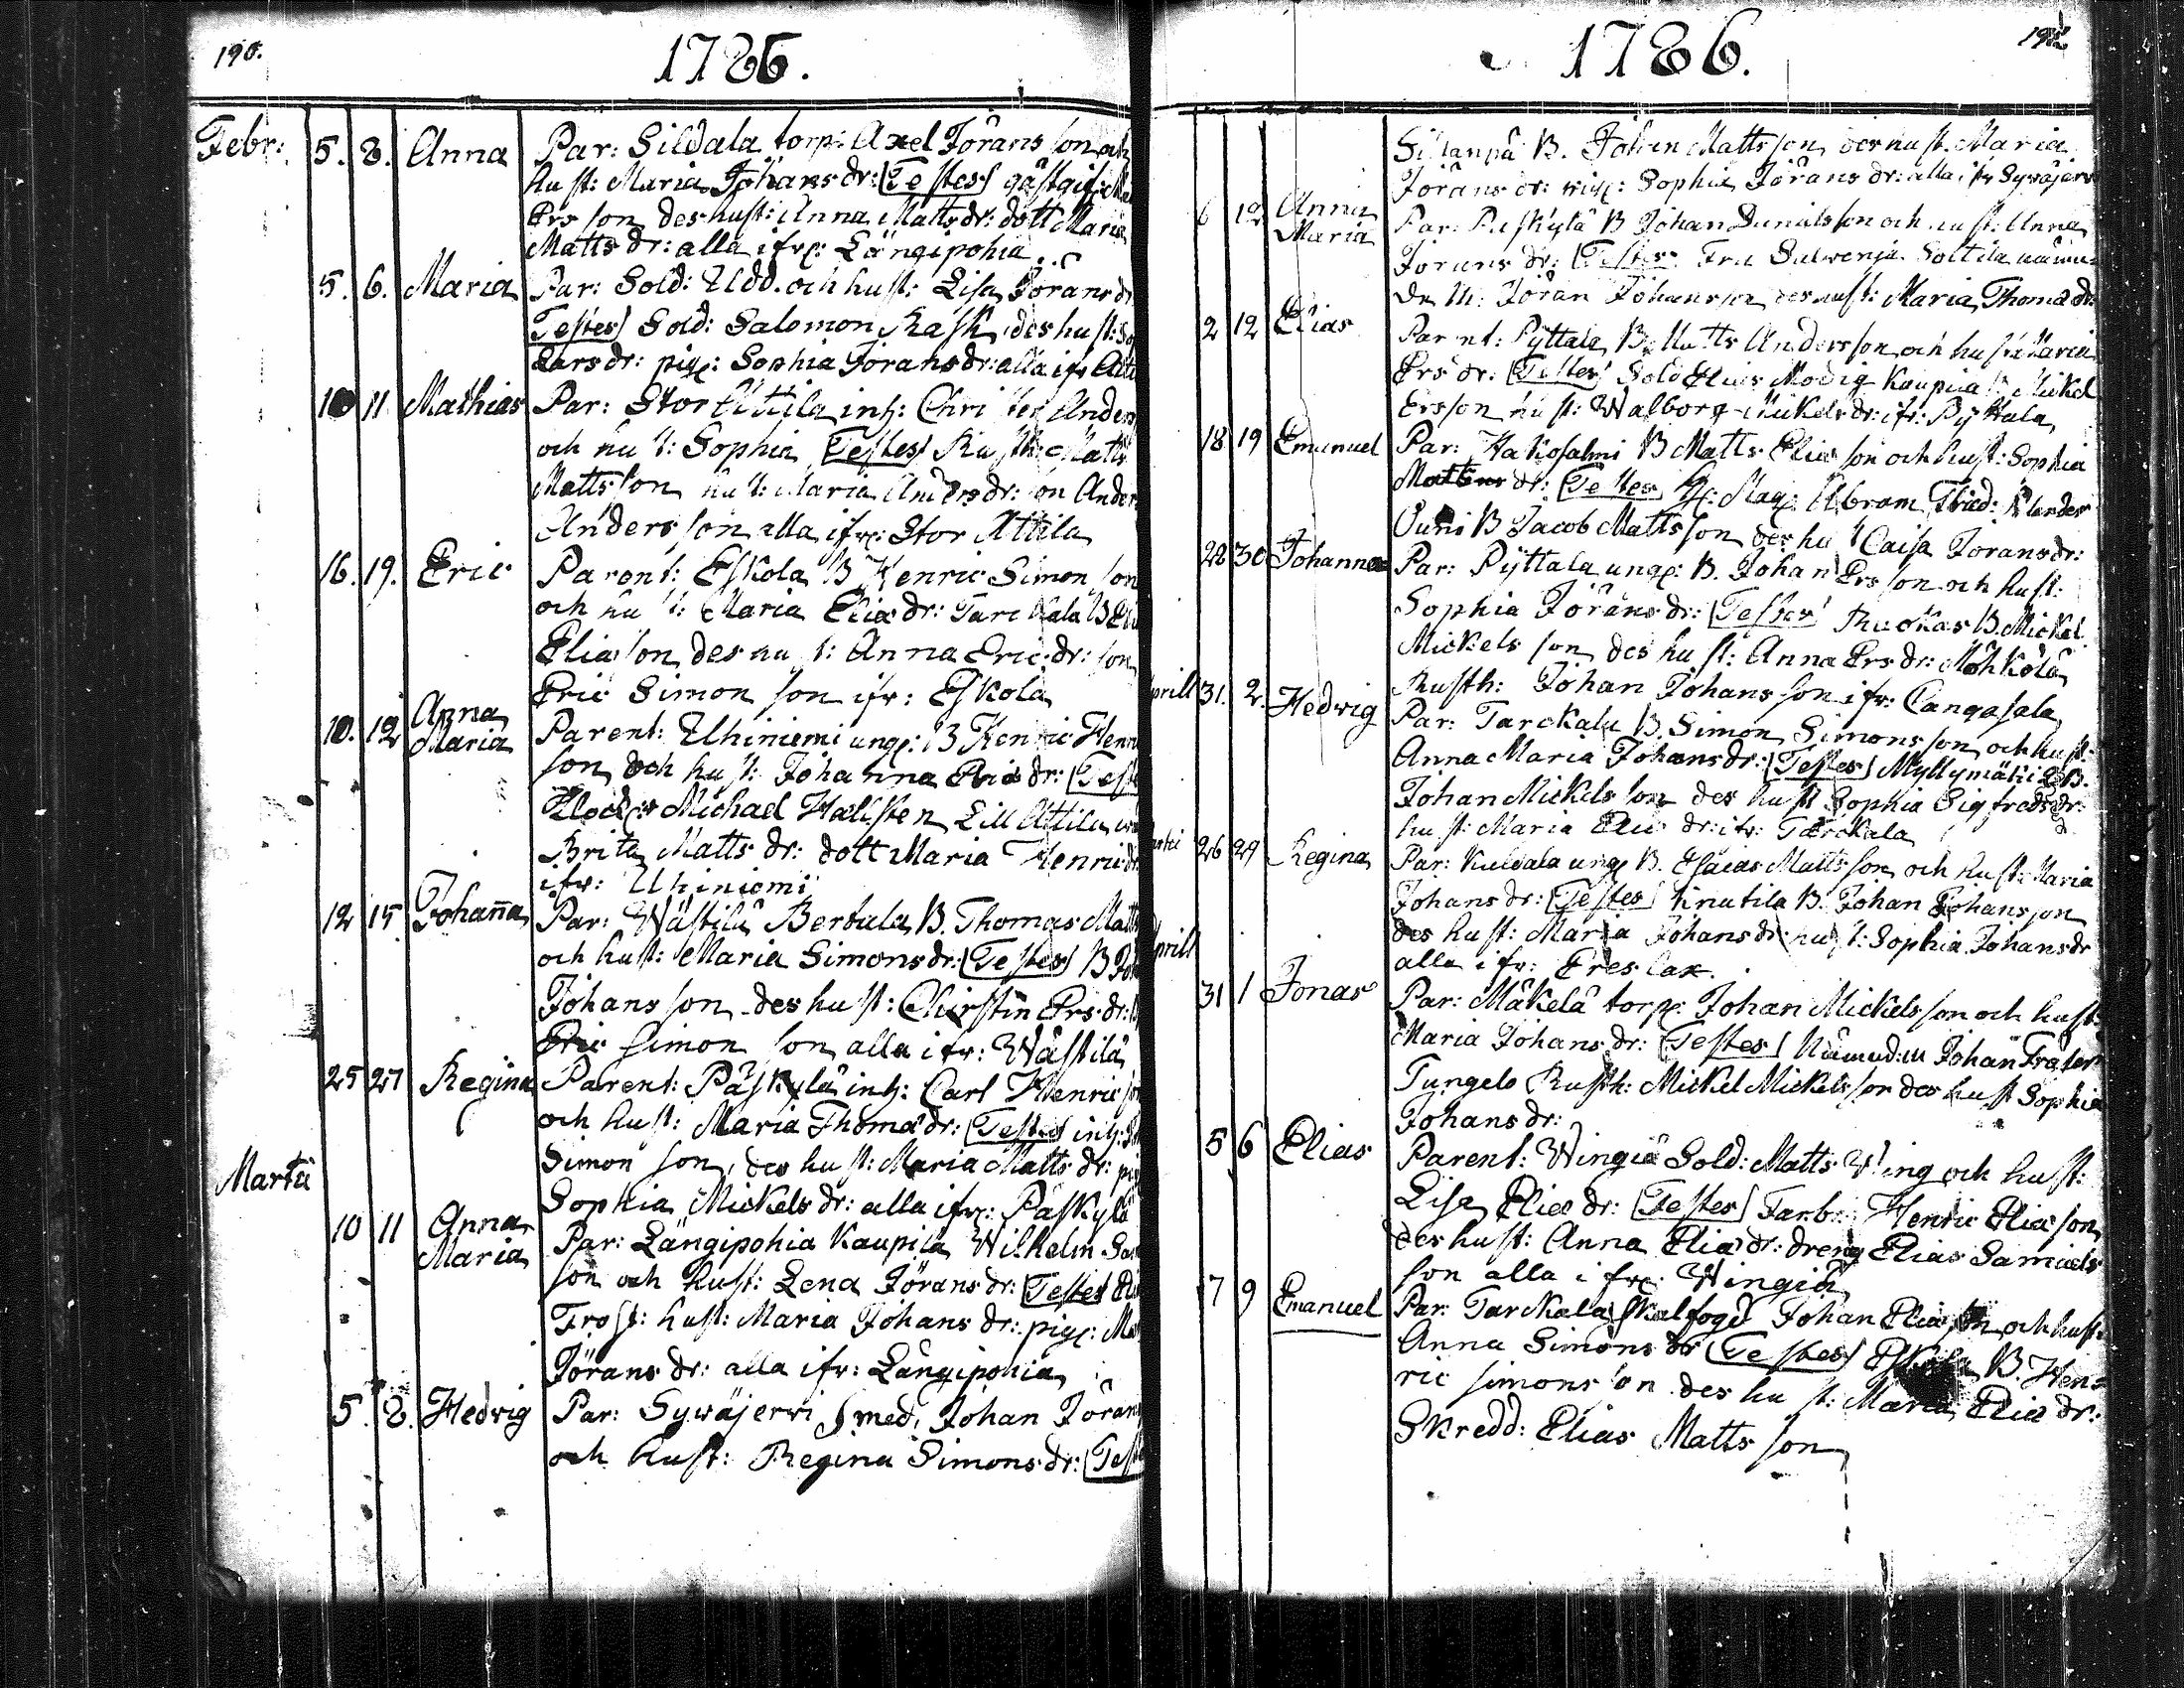 190.
1786.
Febr: 5. 8. Anna Par: Sildala torp: Axel Jörans son och
hust: Maria Johans dr: Testes gästgif:
Ers son des hust: Anna Matts dr: dott Maria
Matts dr: alla ifr: Längipohia
5. 6. Maria Par: Sold: Udd. och hust: Lisa Jörans dr
Testes Sold: Salomon Rask, des hust:
Lars dr: pig: Sophia Jörans dr: alla ifr
10 11 Mathias Par: Stor Attila inh: Christer Anders
och hust: Sophia Testes Rusth: Matts
Matts son hust: Maria Anders dr: son Anders
Anders son alla ifr: Stor Attila
16. 19. Eric Parent: Eskola B Henric Simon son
och hust: Maria Elias dr: Tarckala B
Elias son des hust: Anna Eric dr: son
Eric Simon son ifr: Eskola
10. 12 Anna Maria Parent: Uhiniemi ung: B Henric Henr
son och hust: Johanna Elias dr: Teste
Klockr Michael Hallsten Lill Attila
Brita Matts dr: dott Maria Henric dr
ifr: Uhiniemi
12 15 Johana Par: Wästilä Bertula B. Thomas Matts
och hust: Maria Simons dr: Testes B
Johans son des hust: Chirstin Ers dr:
Eric Simon son alla ifr: Wästilä
25 27 Regina Parent: Päskylä inh: Carl Henric son
och hust: Maria Thoma dr: Testes inh:
Simon son, des hust: Maria Matts dr:
Martii Sophia Mickels dr: alla ifr: Päskylä
10 11 Anna Maria Par: Längipohia Kaupila Wilhelm
son och hust: Lena Jörans dr: Testes
Trost: hust: Maria Johans dr: pig:
Jörans dr: alla ifr: Längipohia
5. 8. Hedvig Par: Sywäjerwi Smed, Johan Jörans
och hust: Regina Simons dr: Test
1786.
Sillanpä B. Johan Matts son des hust. Maria
Jörans dr: Sophia Jörans dr: alla ifr Sywäjerw
6 12 Anna Maria Par: Päskylä B Johan Danielsson och hust: Anna
Jörans dr: Testes Fru Soltila
Jöran Johansson des hust: Maria Thoma dr:
2 12 Elias Parent: Pyttala B. Matts Andersson och hust: Maria
Ers dr: Testes Sold Elias Modig Kaupila B Mickel
Ersson hust: Walborg Mickels dr: ifr: Pyttala
18 19 Emanuel Par: Hakosalmi B Matts Elias son och hust: Sophia
Matts dr: Testes H: Mag: Abram Fried: Kiander
Ouni B Jacob Matts son des hust Caisa Jorans dr:
28 30 Johanna Par: Pyttala ung: B. Johan Ers son och hust:
Sophia Jörans dr: Testes Ruokas B. Mickel
Mickels son des hust: Anna Ers dr: Möhkölä
Rusth: Johan Johans son ifr: Cangasala
prill 31. 2. Hedvig Par: Tarckala B. Simon Simons son och hust:
Anna Maria Johans dr: Testes Myllymäki B.
Johan Mickels son des hust Sophia Sigfreds dr:
hust: Maria Elias dr: ifr: Tarckala
26 29 Regina Par: Kuldala ung B. Esaias Matts son och hust: Maria
Johans dr: Testes Knutila B. Johan Johansson
des hust: Maria Johans dr hust: Sophia Johans dr
prill alla ifr: Eres lax.
31 1 Jonas Par: Mäkelä torp: Johan Mickels son och hust:
Maria Johans dr: Testes Nämnd: M Johan Frater
Tungelo Rusth: Mickel Mickels son des hust Sophia
Johans dr:
5 6 Elias Parent: Wingiä Sold: Matts Wing och hust:
Lisa Elias dr: Testes Farb: Henric Elias son
des hust: Anna Elias dr: dreng Elias Samuels
son alla ifr: Wingiä
17 9 Emanuel Par: Tarckala Skalfogd Johan Elias son och hust:
Anna Simons dr Testes Eskola B. Hen=
ric Simons son des hust: Maria Elias dr:
Skredd: Elias Matts son